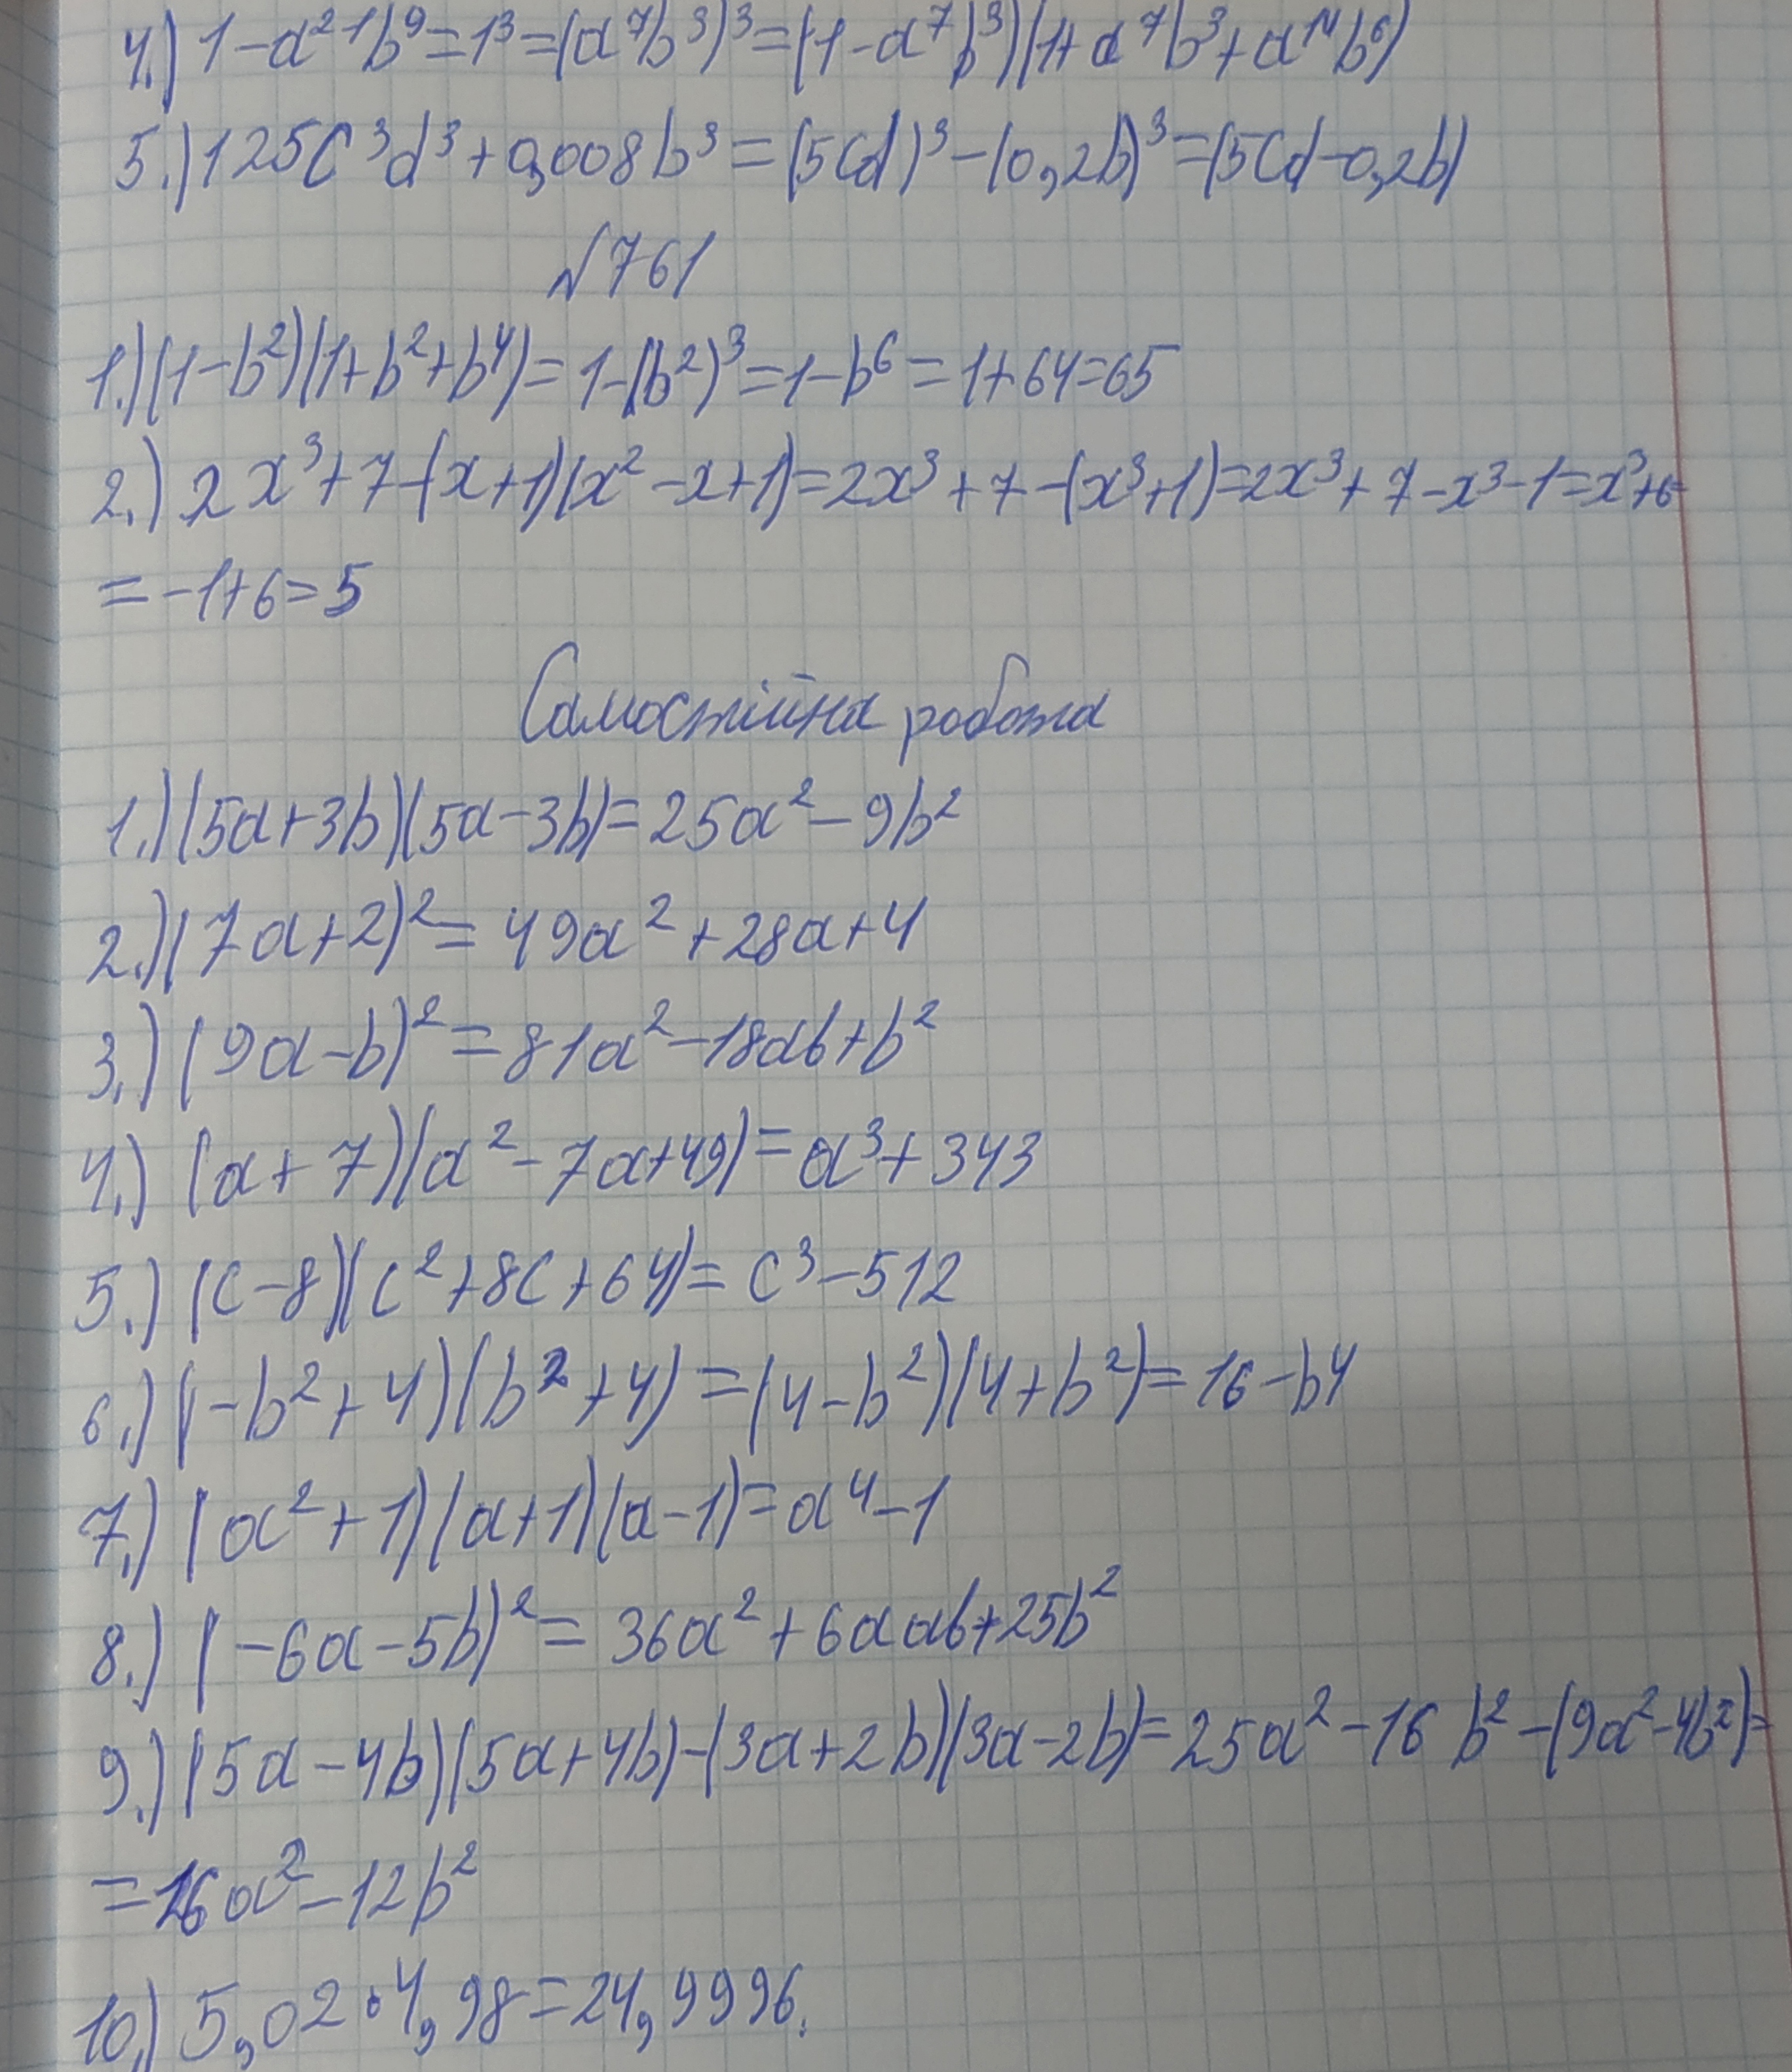 4.) 1-a²¹b⁹=1³=(a⁷b³)³=(1-a⁷b³)(1+a⁷b³+a¹⁴b⁶)
5.) 125c³d³+0,008b³=(5cd)³-(0,2b)³=(5cd-0,2b)
№761
1.) (1-b²)(1+b²+b⁴)=1-(b²)³=1-b⁶=1+64=65
2.) 2x³+7-(x+1)(x²-x+1)=2x³+7-(x³+1)=2x³+7-x³-1=x³+6=
=-1+6=5
Самостійна робота
1.) (5a+3b)(5a-3b)=25a²-9b²
2.) (7a+2)²=49a²+28a+4
3.) (9a-b)²=81a²-18ab+b²
4.) (a+7)(a²-7a+49)=a³+343
5.) (c-8)(c²+8c+64)=c³-512
6.) (-b²+4)(b²+4)=(4-b²)(4+b²)=16-b4
7.) (a²+1)(a+1)(a-1)=a⁴-1
8.) (-6a-5b)²=36a²+6aab+25b²
9.) (5a-4b)(5a+4b)-(3a+2b)(3a-2b)=25a²-16b²-(9a²-4b²)=
=16a²-12b²
10.) 5,02·4,98=24,9996.